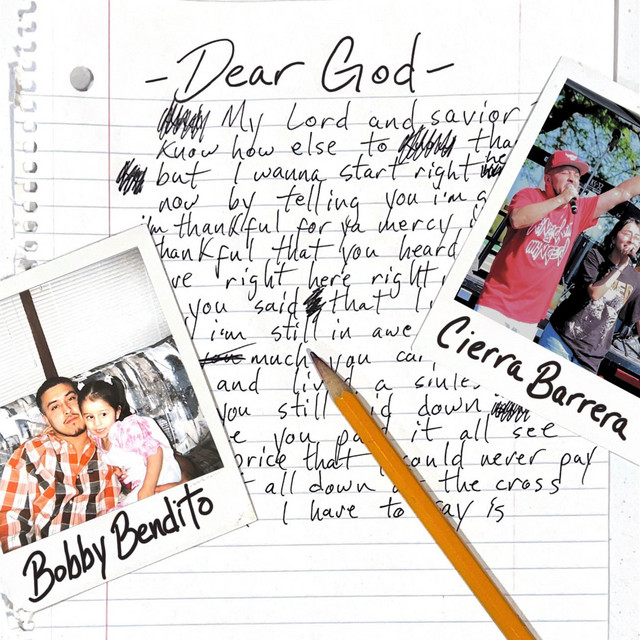 - Dear God -
My Lord and savior
Know how else to tha
but I wanna start right he
now by telling you i'm g
i'm thankful for ya mercy
thankful that you heard
ve right here right
you said that I
i'm still in awe
much you ca
and live a sinle
you still id down
e you paid it all see
price that I could never pay
t all down the cross
I have to say is
Cierra Barrera
Bobby Bendito